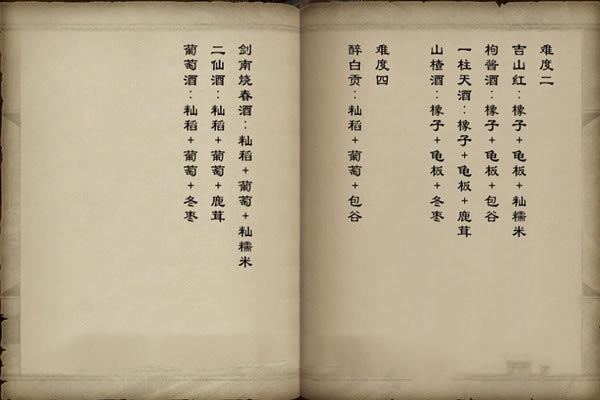 难度二
吉山红：橡子+龟板+籼糯米
枸酱酒：橡子+龟板+包谷
一柱天酒：橡子+龟板+鹿茸
山楂酒：橡子+龟板+冬枣
难度四
醉白贡：籼稻+葡萄+包谷
剑南烧春酒：籼稻+葡萄+籼糯米
二仙酒：籼稻+葡萄+鹿茸
葡萄酒：籼稻+葡萄+冬枣